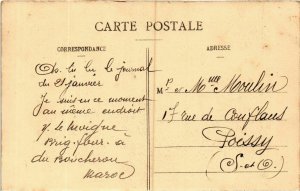 CARTE POSTALE
CORRESPONDANCE
As-tu lu le journal
du 21 janvier
Je suis en ce moment
au même endroit
Brig. four. à
Maroc
ADRESSE
M. et Mme Moulin
17 rue de Conflans
Poissy
(S-et-O.)